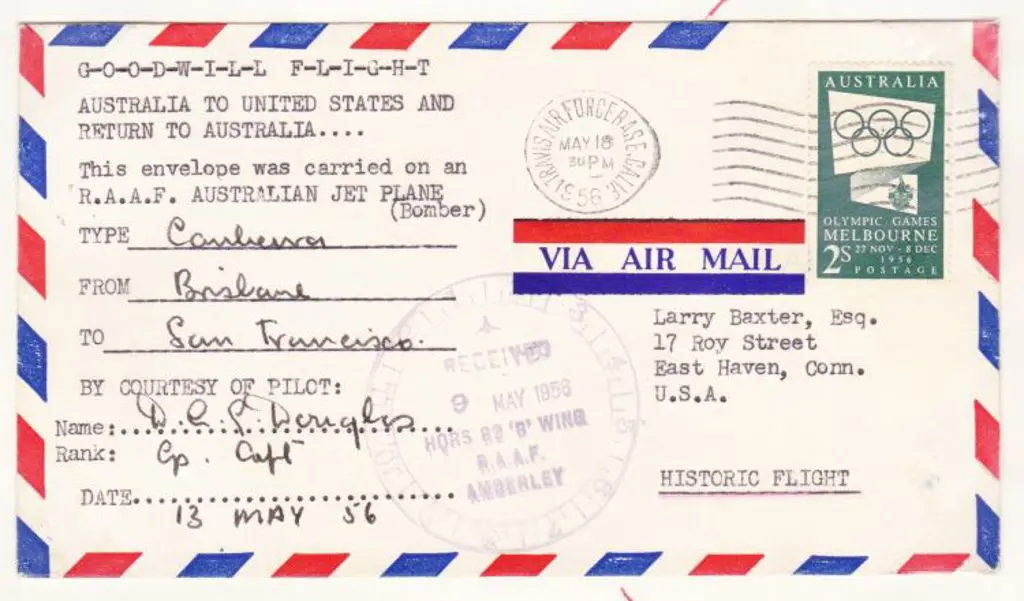 G-O-O-D-W-I-L-L F-L-I-G-H-T
AUSTRALIA TO UNITED STATES AND
RETURN TO AUSTRALIA....
This envelope was carried on an
R.A.A.F. AUSTRALIAN JET PLANE
(Bomber)
TYPE Canberra
FROM Brisbane
TO San Francisco.
BY COURTESY OF PILOT:
Name: Douglas
Rank: Gp. Capt
DATE
13 MAY 56
RECEIVED
9 MAY 1956
HQRS 82 'B' WING
R.A.A.F.
AMBERLEY
TRAVIS AIR FORCE BASE CALIF.
MAY 18
PM
1956
VIA AIR MAIL
AUSTRALIA
OLYMPIC GAMES
MELBOURNE
2S 27 NOV - 8 DEC
1956
POSTAGE
Larry Baxter, Esq.
17 Roy Street
East Haven, Conn.
U.S.A.
HISTORIC FLIGHT